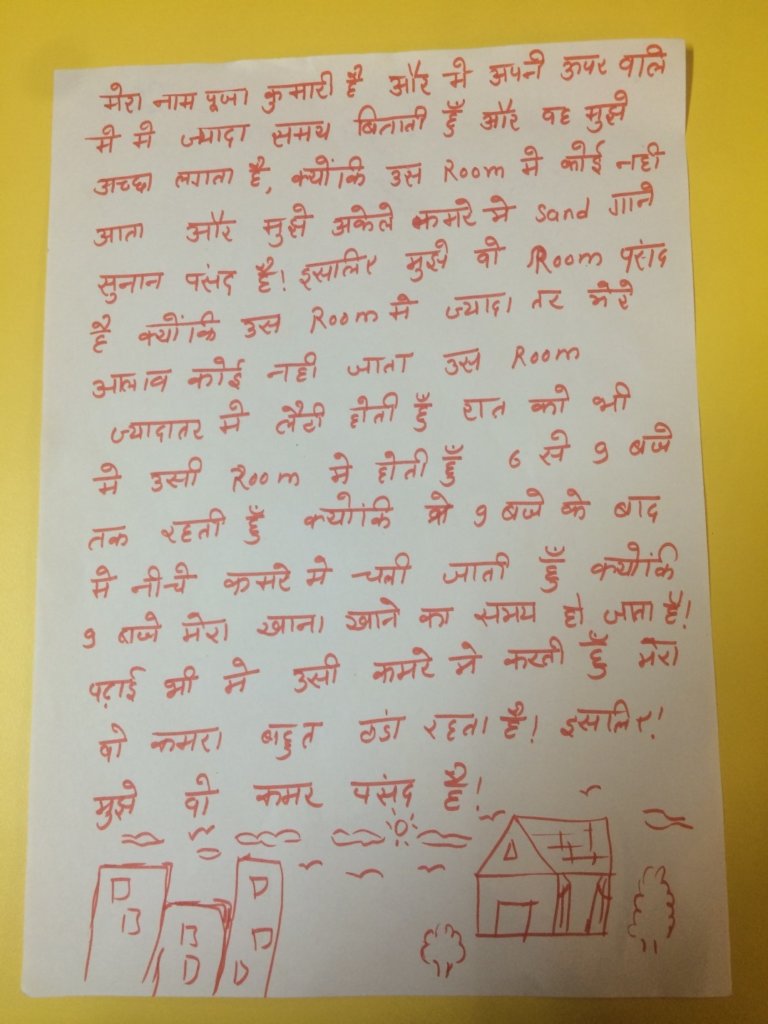 मेरा नाम पूजा कुमारी है और मे अपनी ऊपर वालि
मे मे ज्यादा समय बिताती हुँ और वह मुझे
अच्छा लगता है, क्योंकि उस Room मे कोई नही
आता और मुझे अकेले कमरे मे Sand गाने
सुनान पसंद है! इसालिए मुझे वो Room पसंद
है क्योंकि उस Room मे ज्यादा तर मेरे
आलाव कोई नही जाता उस Room
ज्यादातर मे लैटी होती हुँ रात को भी
मे उसी Room मे होती हुँ 6 से 9 बजे
तक रहती हुँ क्योंकि 9 बजे के बाद
मे नीचे कमरे मे चली जाती हुँ क्योंकि
9 बजे मेरा खाना खाने का समय हो जाता है!
पढ़ाई भी मे उसी कमरे मे करती हुँ मेरा
वो कमरा बहुत ठंडा रहता है! इसालिए!
मुझे वो कमर पसंद है!